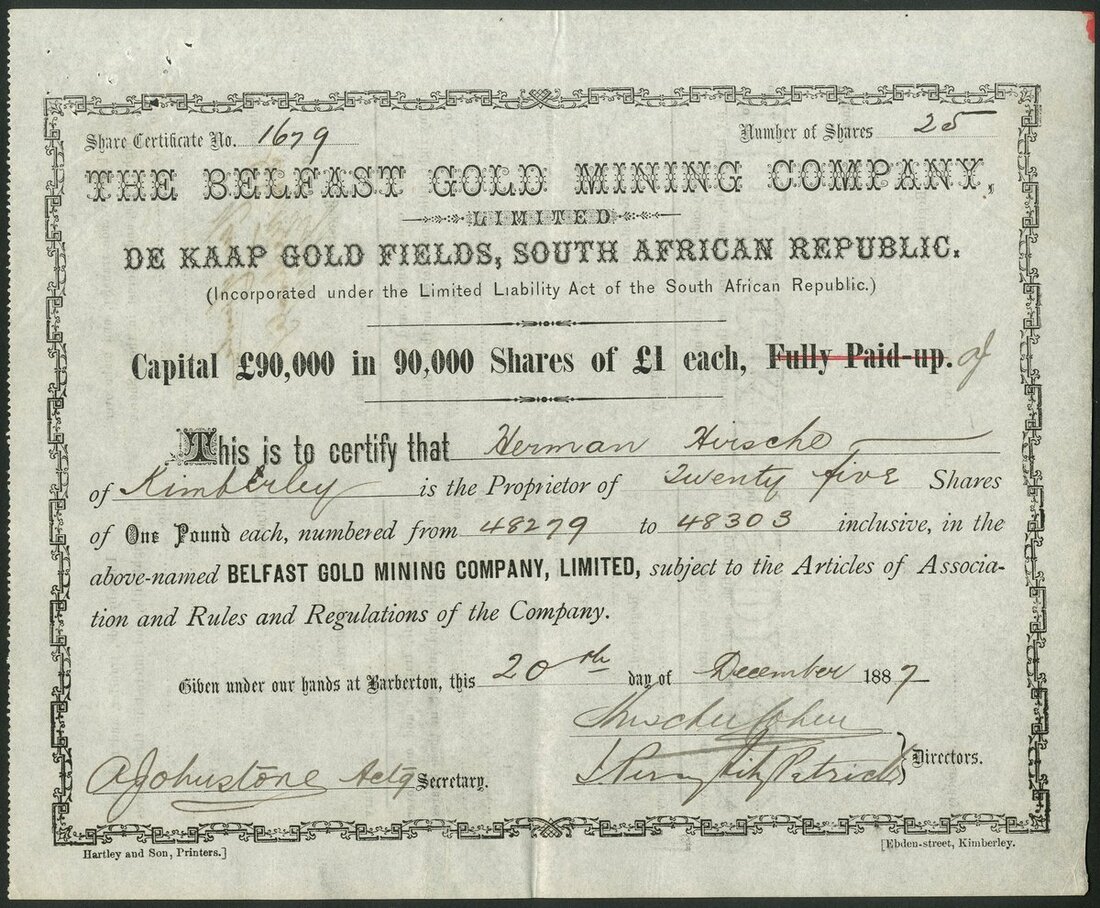 Share Certificate No. 1679 Number of Shares 25
THE BELFAST GOLD MINING COMPANY,
LIMITED
DE KAAP GOLD FIELDS, SOUTH AFRICAN REPUBLIC.
(Incorporated under the Limited Liability Act of the South African Republic.)
Capital £90,000 in 90,000 Shares of £1 each, Fully Paid-up.
This is to certify that Herman Hirsche
of Kimberley is the Proprietor of Twenty five Shares
of One Pound each, numbered from 48279 to 48303 inclusive, in the
above-named BELFAST GOLD MINING COMPANY, LIMITED, subject to the Articles of Associa-
tion and Rules and Regulations of the Company.
Given under our hands at Barberton, this 20th day of December 1887
Cohen
J Percy FitzPatrick Directors.
A Johnstone Actg Secretary.
Hartley and Son, Printers.] [Ebden-street, Kimberley.